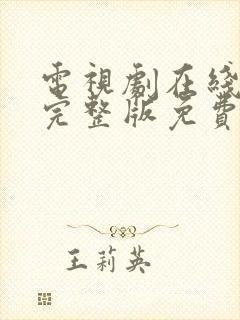 電視劇在綫
完整版免費
王莉英